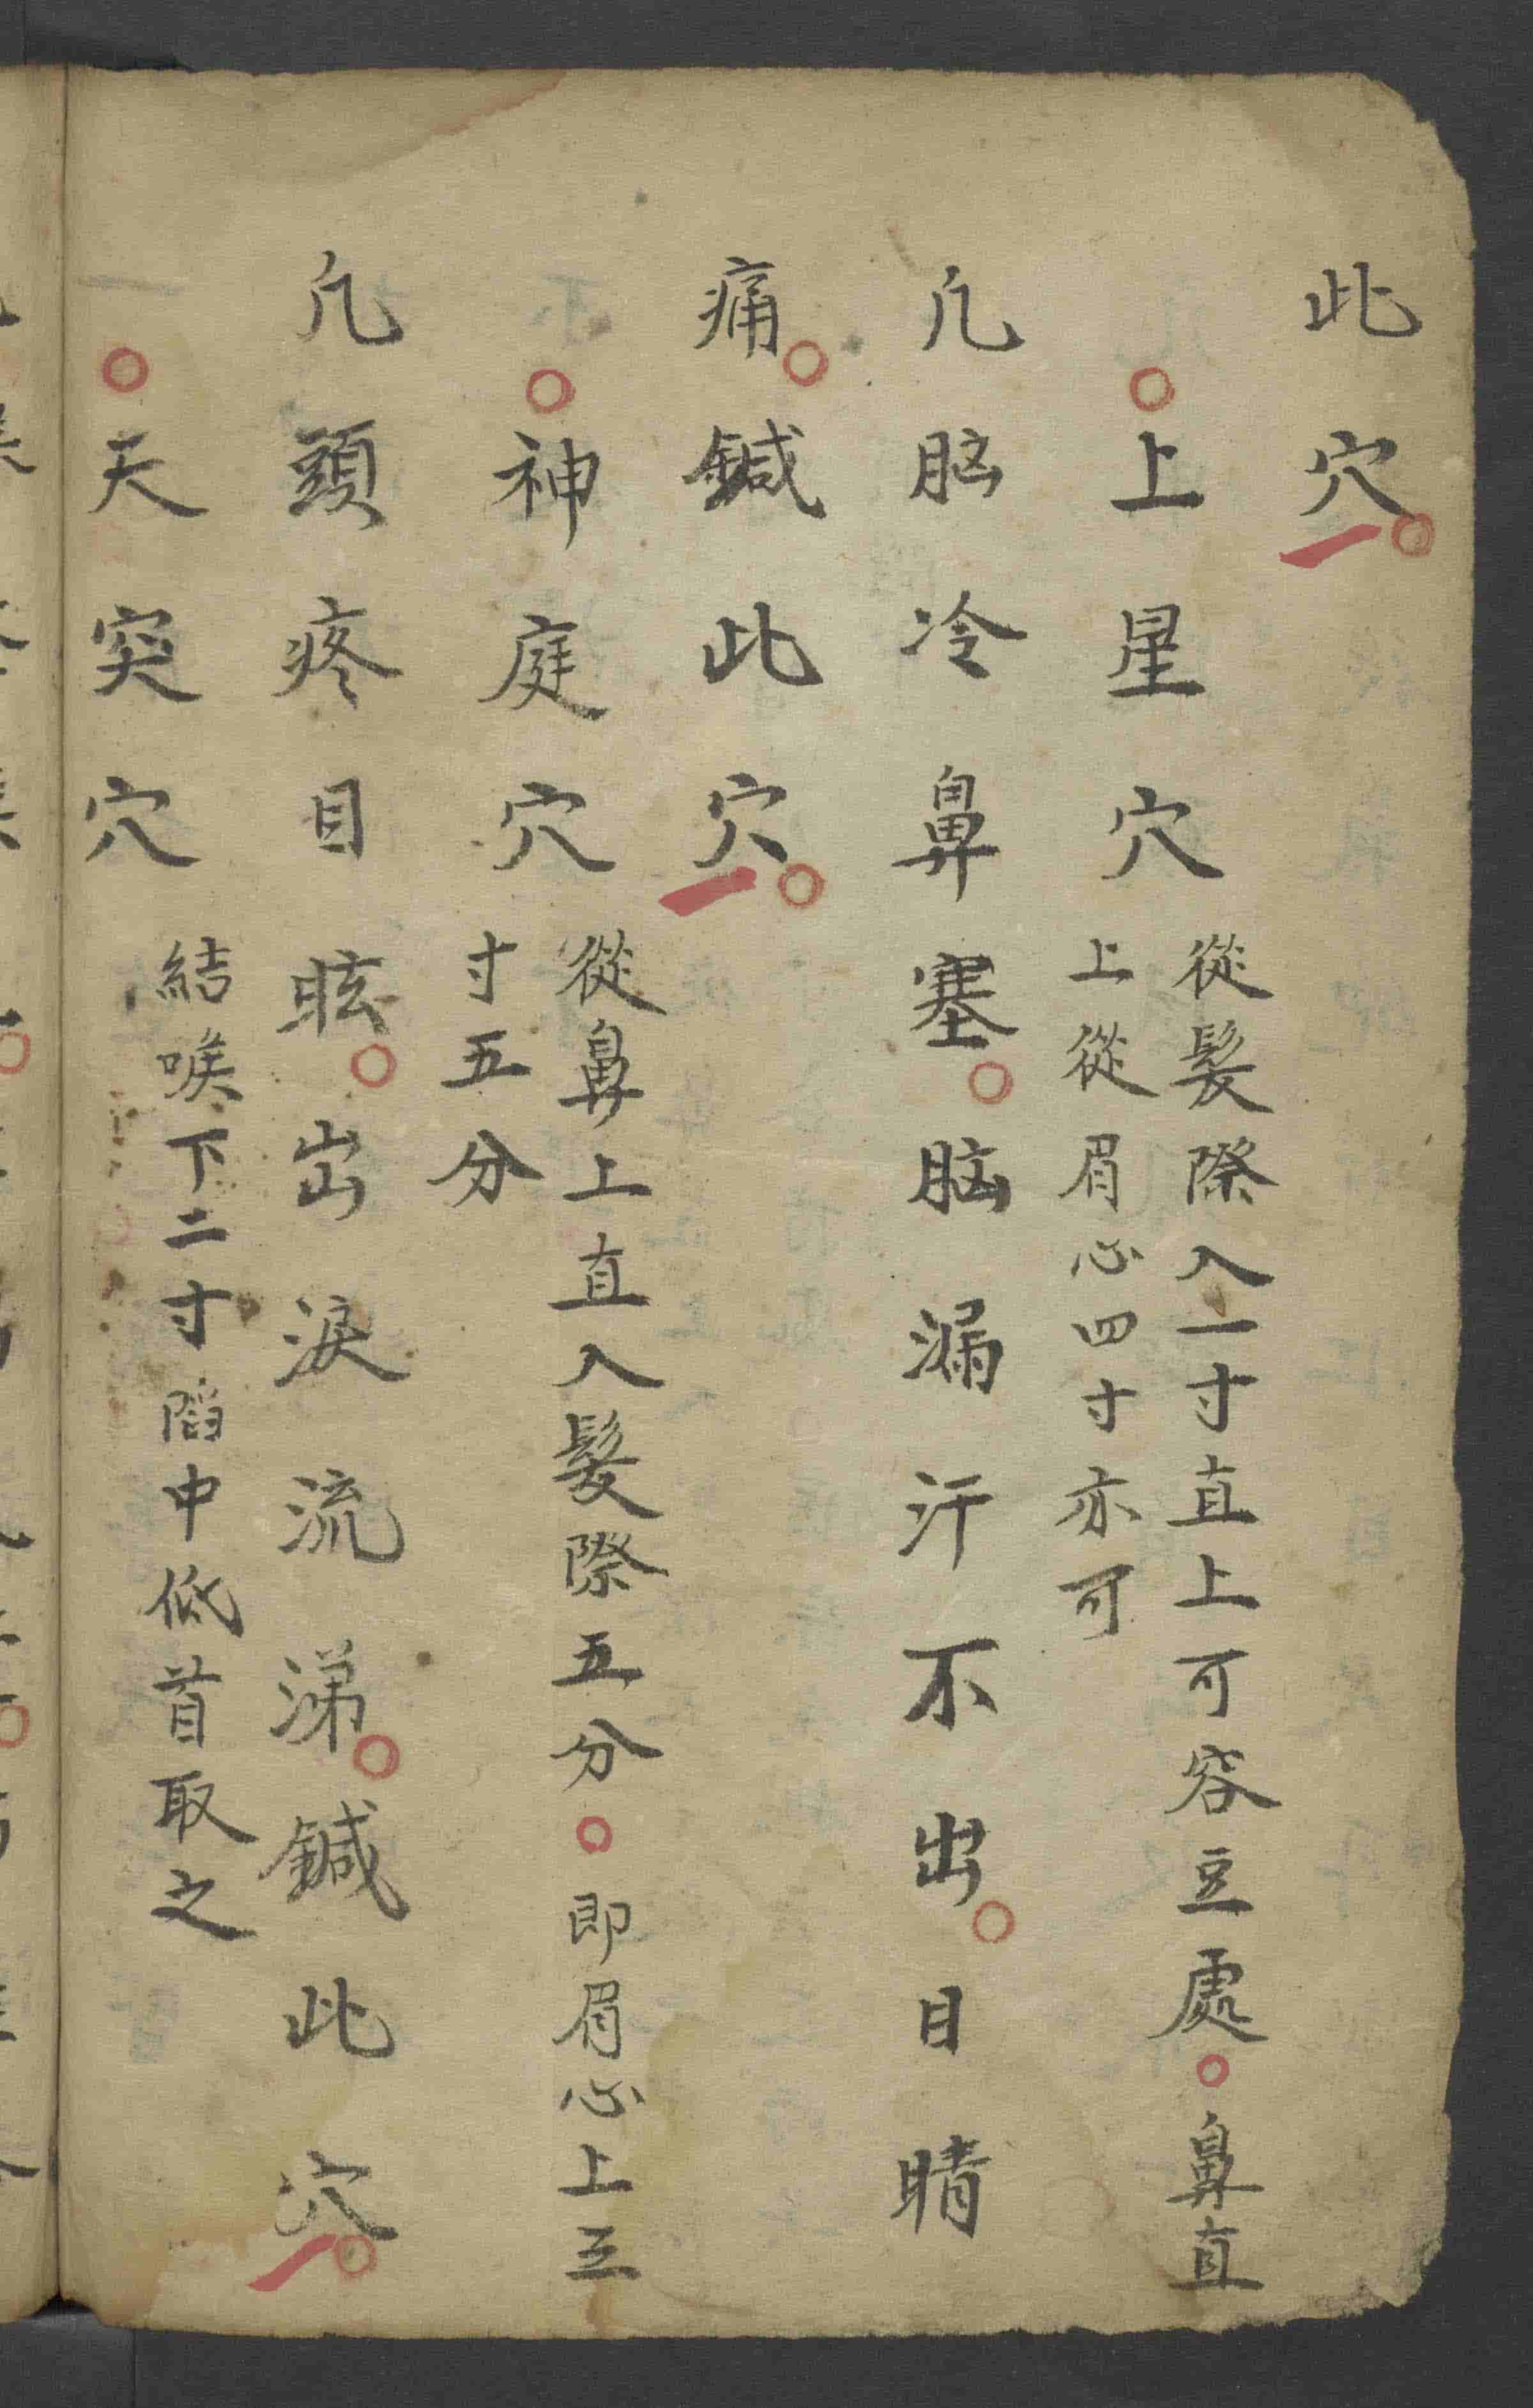 此穴○
○上星穴
從髮際入一寸直上可容豆處○鼻直
上從眉心四寸亦可
凡脑冷鼻塞○脑漏汗不出○目睛
痛○鍼此穴○
○神庭穴
從鼻上直入髮際五分○即眉心上三
寸五分
凡頭疼目眩○出淚流涕○鍼此穴○
○天突穴
結喉下二寸䧟中低首取之